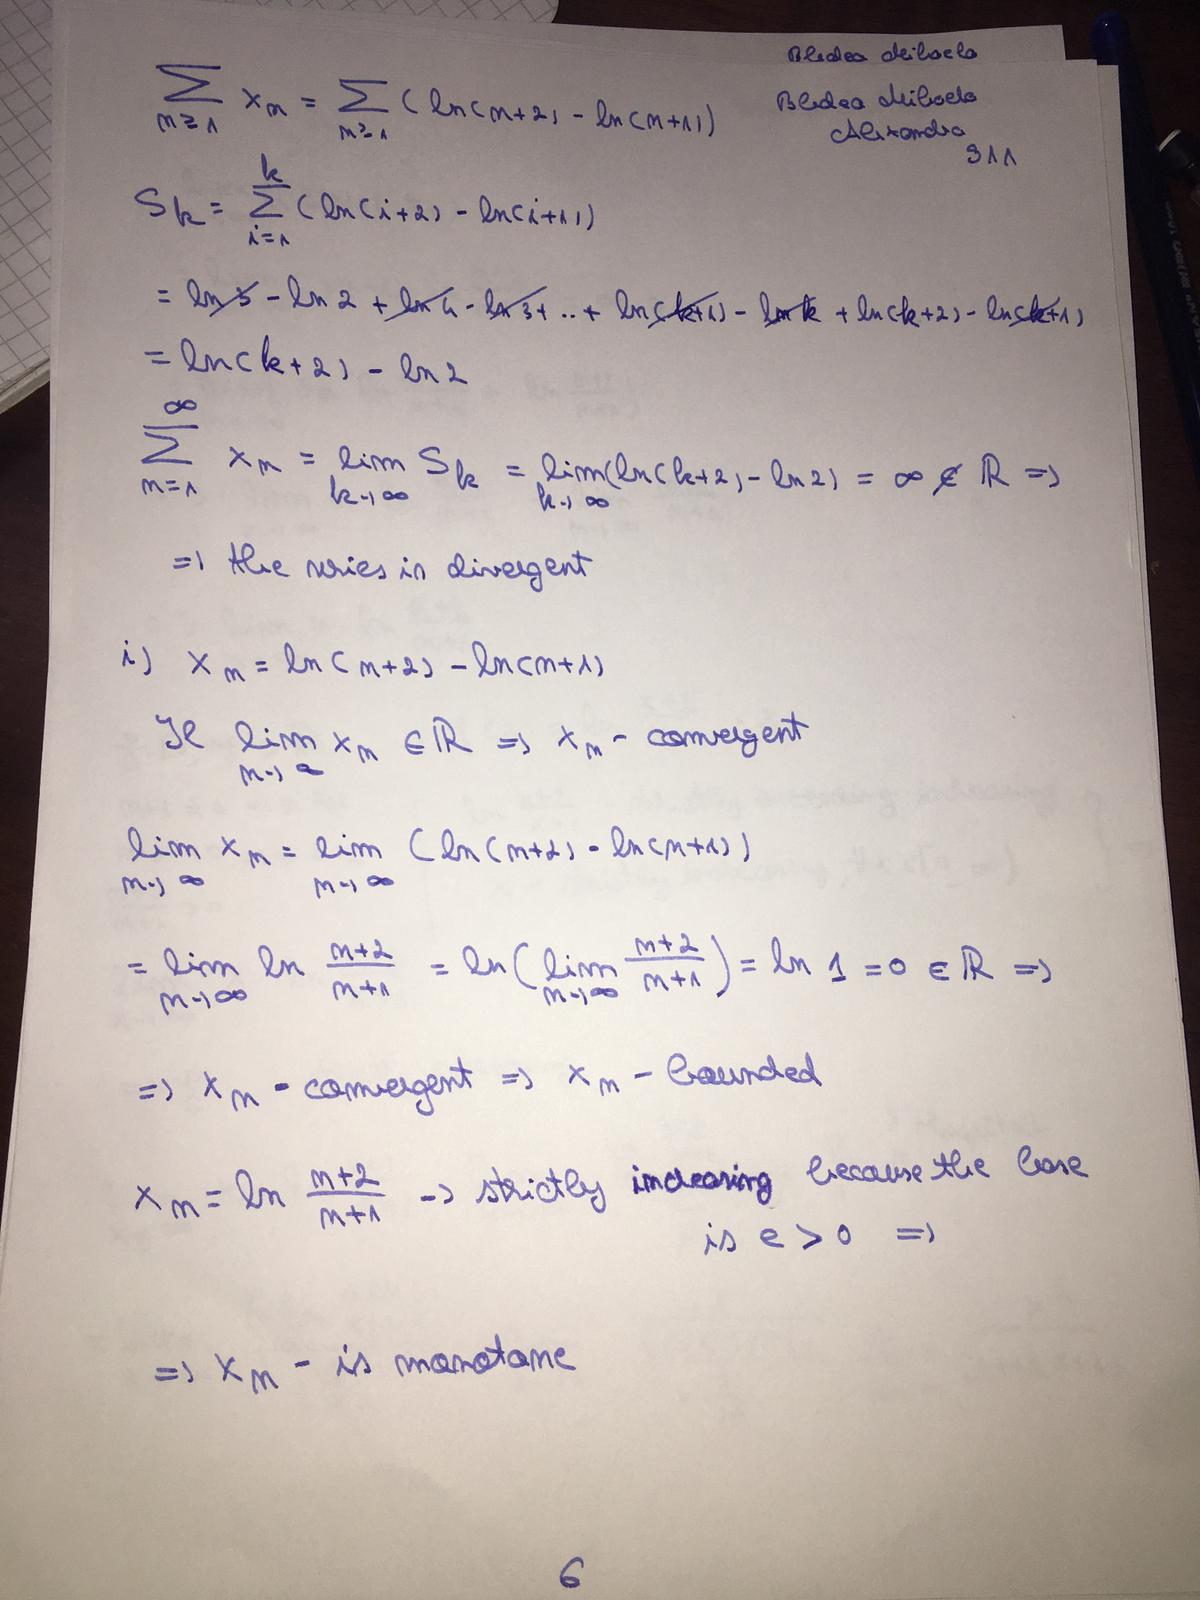 Bledea Mihaela
Bledea Mihaela
Alexandra
311
∑_{n≥1} x_n = ∑_{n≥1} (ln(n+2) - ln(n+1))
S_k = ∑_{i=1}^{k} (ln(i+2) - ln(i+1))
= ln 3 - ln 2 + ln 4 - ln 3 + .. + ln(k+1) - ln k + ln(k+2) - ln(k+1)
= ln(k+2) - ln 2
∑_{n=1}^{∞} x_n = lim_{k→∞} S_k = lim_{k→∞} (ln(k+2) - ln 2) = ∞ ∉ ℝ =>
=> the series is divergent
i) x_n = ln(n+2) - ln(n+1)
If lim_{n→∞} x_n ∈ ℝ => x_n - convergent
lim_{n→∞} x_n = lim_{n→∞} (ln(n+2) - ln(n+1))
= lim_{n→∞} ln \frac{n+2}{n+1} = ln(lim_{n→∞} \frac{n+2}{n+1}) = ln 1 = 0 ∈ ℝ =>
=> x_n - convergent => x_n - bounded
x_n = ln \frac{n+2}{n+1} -> strictly increasing because the base
is e > 0 =>
=> x_n - is monotone
6